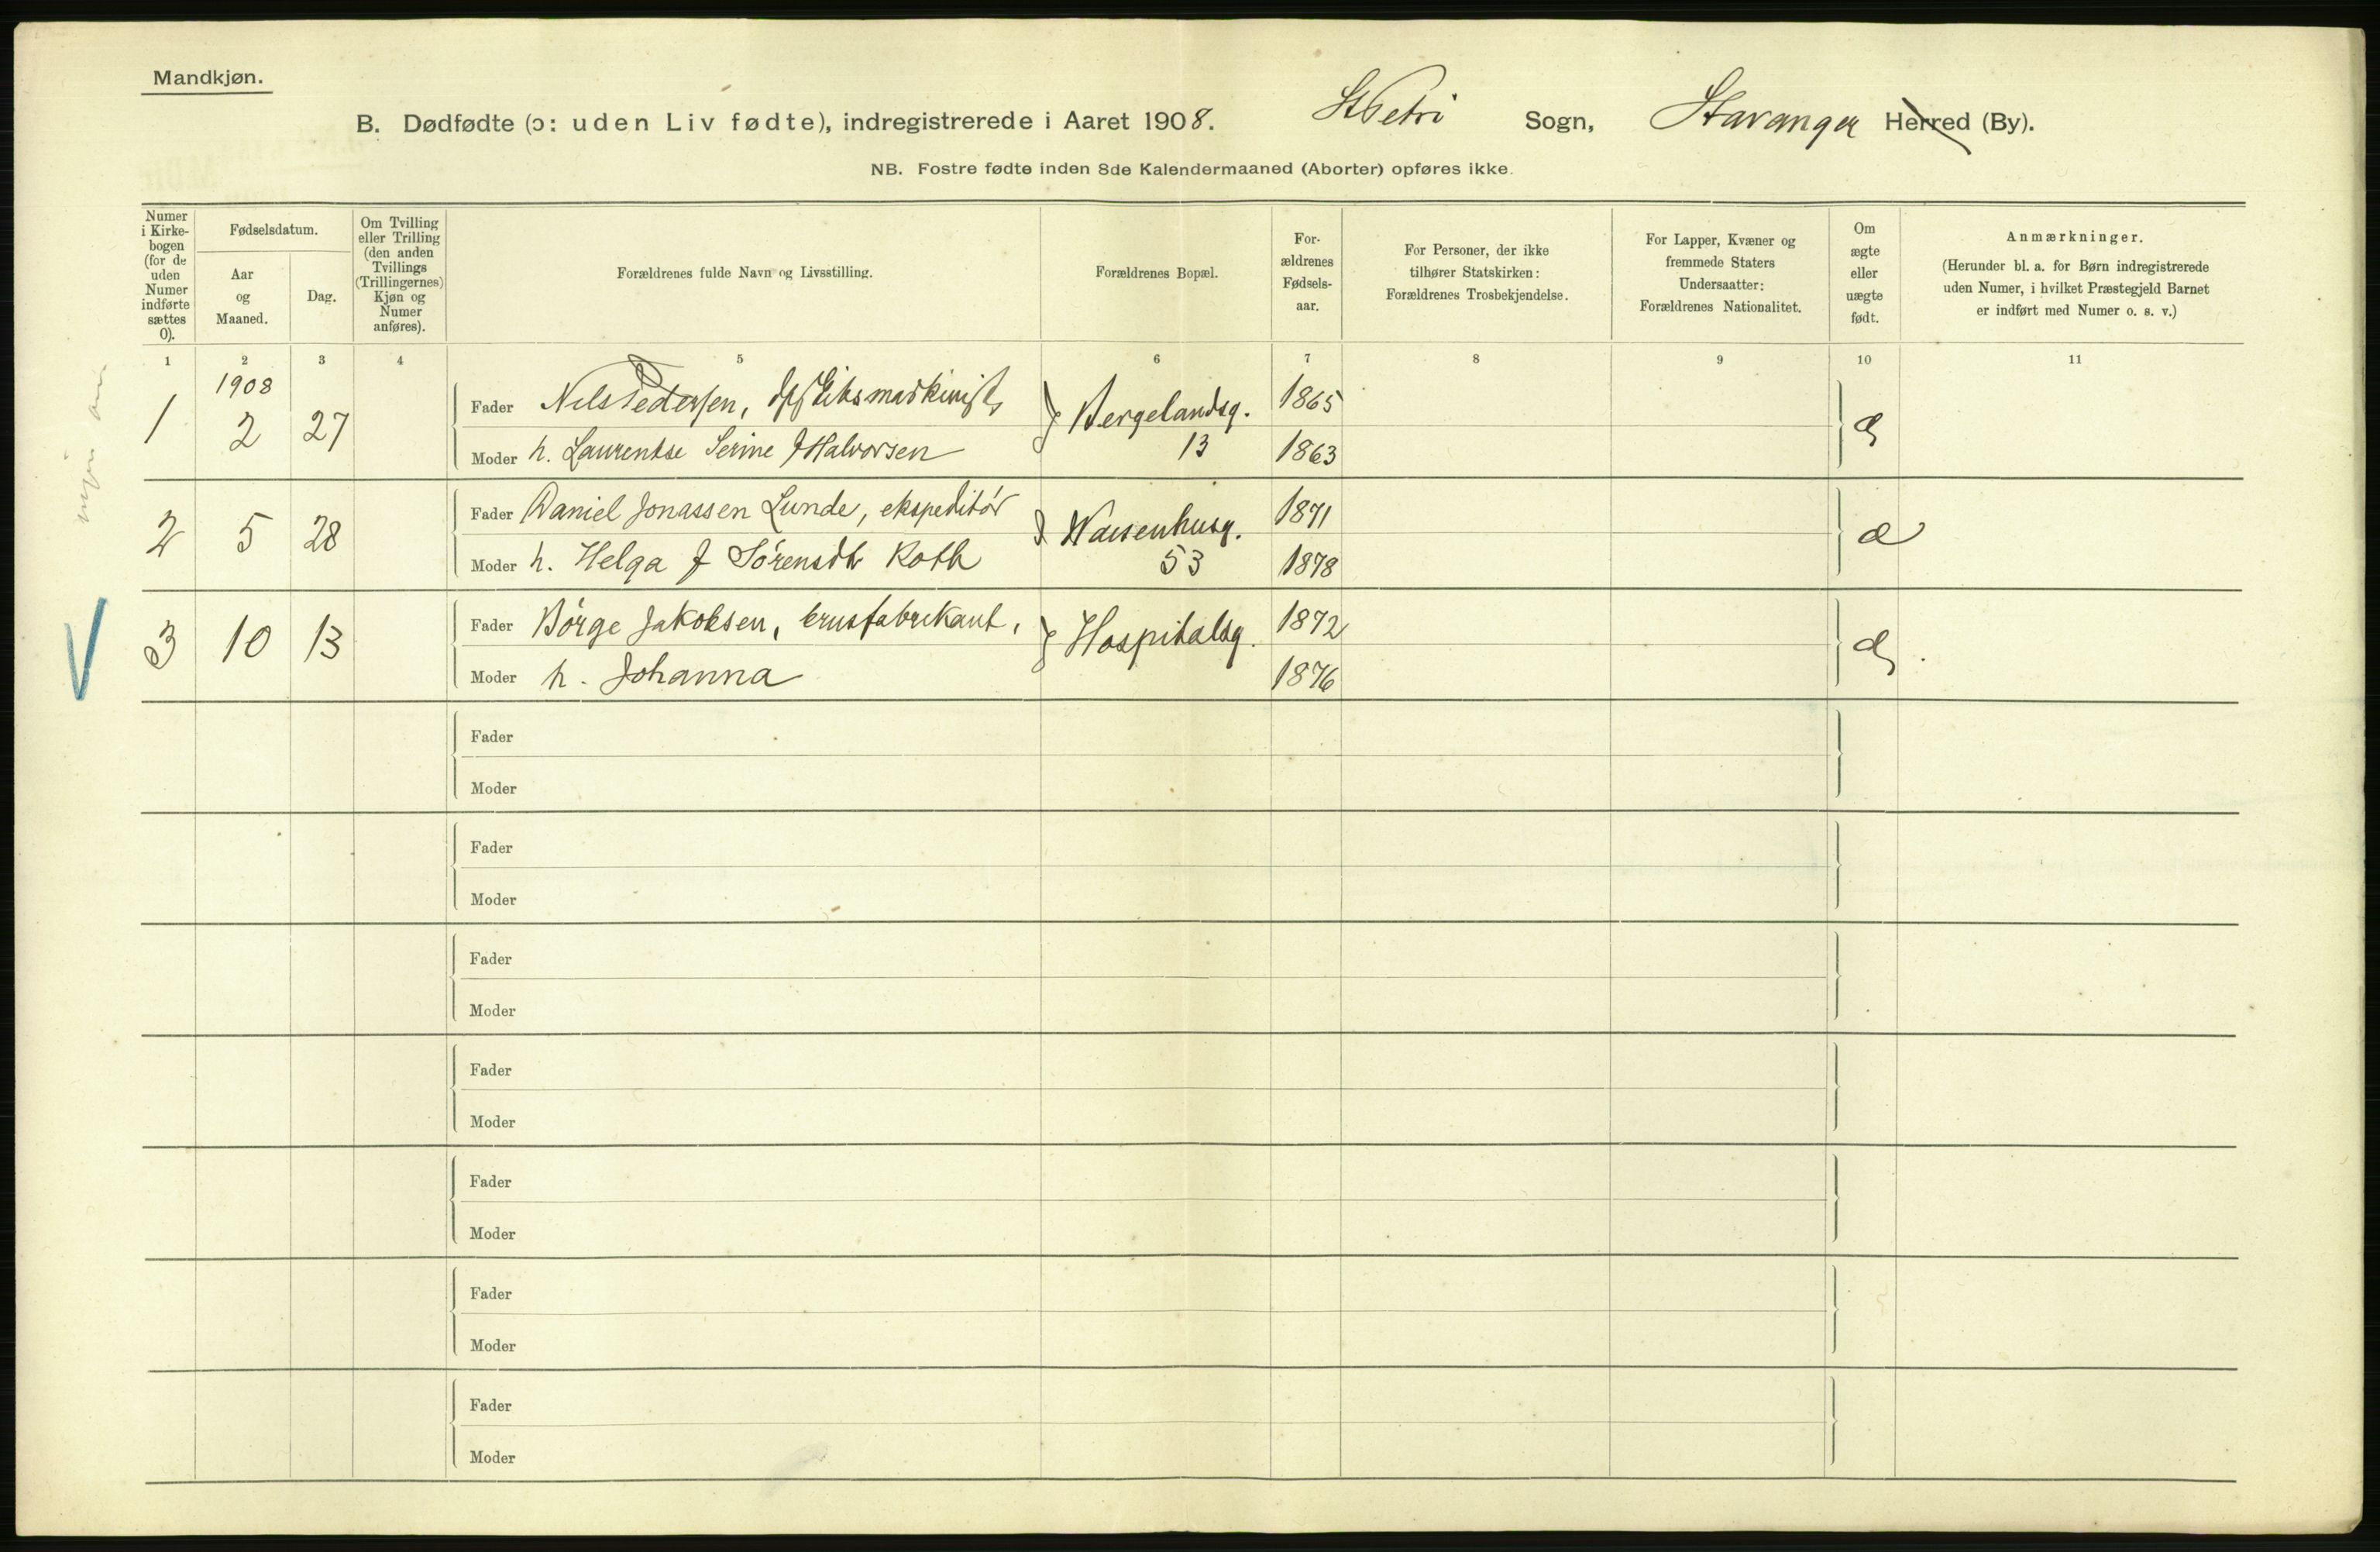 Mandkjøn.
B. Dødfødte (ɔ: uden Liv fødte), indregistrerede i Aaret 1908. St Petri Sogn, Stavanger Herred (By).
NB. Fostre fødte inden 8de Kalendermaaned (Aborter) opføres ikke.
Numer i Kirkebogen (for de uden Numer indførte sættes 0).
Fødselsdatum.
Aar og Maaned.
Dag.
Om Tvilling eller Trilling (den anden Tvillings (Trillingernes) Kjøn og Numer anføres).
Forældrenes fulde Navn og Livsstilling.
Forældrenes Bopæl.
Forældrenes Fødselsaar.
For Personer, der ikke tilhører Statskirken: Forældrenes Trosbekjendelse.
For Lapper, Kvæner og fremmede Staters Undersaatter: Forældrenes Nationalitet.
Om ægte eller uægte født.
Anmærkninger.
(Herunder bl. a. for Børn indregistrerede uden Numer, i hvilket Præstegjeld Barnet er indført med Numer o. s. v.)
1 2 3 4 5 6 7 8 9 10 11
1908
1 2 27 Fader Nils Pedersen, Bergelandsg. 1865
Moder h. Laurentse Serine f Halvorsen 13 1863
2 5 28 Fader Daniel Jonassen Lunde, ekspeditør Waisenhusg. 1871
Moder h. Helga f Sørensdtr Roth 53 1878
3 10 13 Fader Børge Jakobsen, brusfabrikant, Hospitalsg. 1872
Moder h. Johanna 1876
Fader
Moder
Fader
Moder
Fader
Moder
Fader
Moder
Fader
Moder
Fader
Moder
Fader
Moder